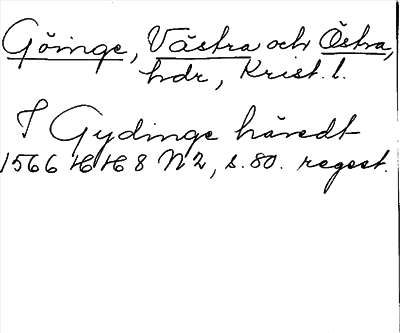 Göinge, Västra och Östra,
hdr, Krist. l.
J Gydinge häredt
1566 HH 8 N 2, s. 80. regest.